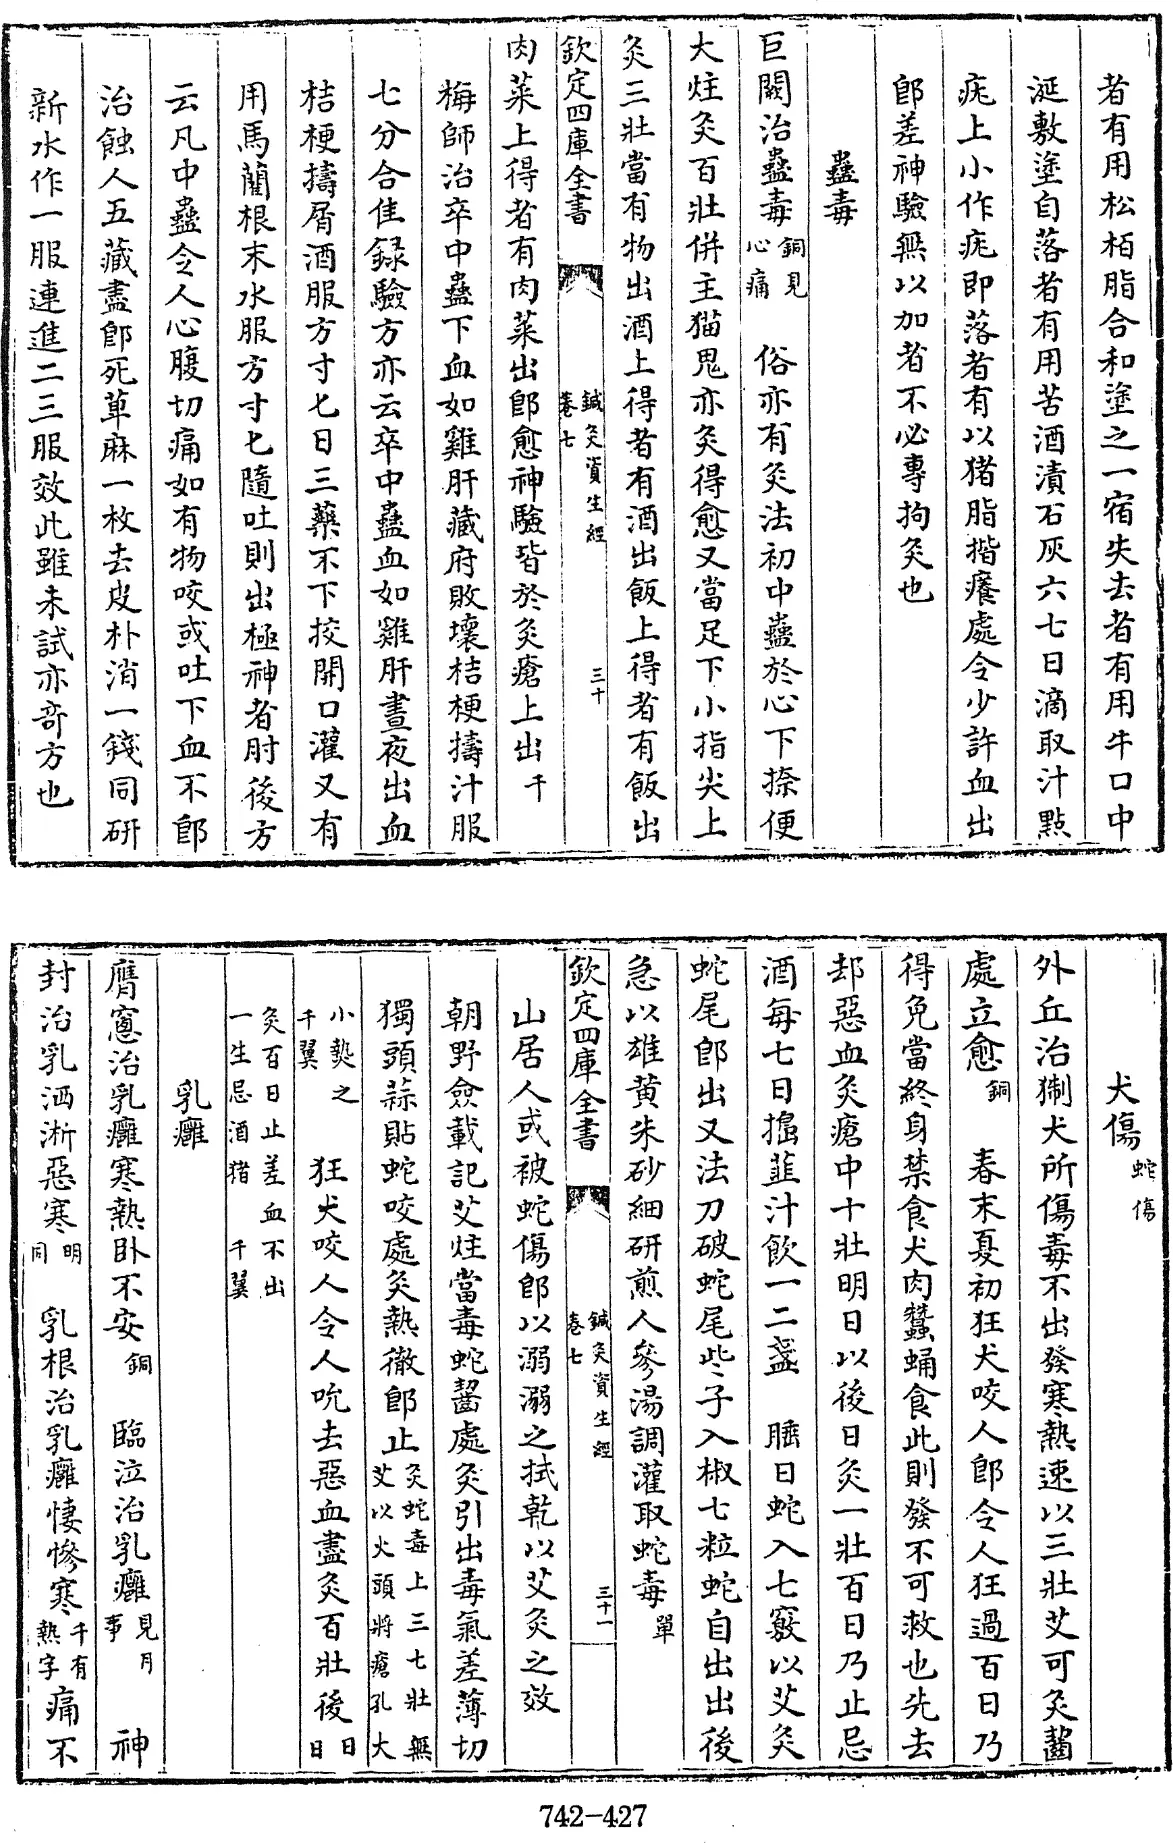 者有用松栢脂合和塗之一宿失去者有用牛口中
涎敷塗自落者有用苦酒漬石灰六七日滴取汁點
疣上小作疣即落者有以猪脂揩癢處令少許血出
即差神驗無以加者不必專拘灸也
蠱毒
巨闕治蠱毒銅見心痛 俗亦有灸法初中蠱於心下捺便
大炷灸百壯併主猫鬼亦灸得愈又當足下小指尖上
灸三壯當有物出酒上得者有酒出飯上得者有飯出
欽定四庫全書 鍼灸資生經 卷七 三十
肉菜上得者有肉菜出即愈神驗皆於灸瘡上出千
梅師治卒中蠱下血如雞肝藏府敗壞桔梗擣汁服
七分合佳録驗方亦云卒中蠱血如雞肝晝夜出血
桔梗擣屑酒服方寸匕日三藥不下挍開口灌又有
用馬藺根末水服方寸匕隨吐則出極神者肘後方
云凡中蠱令人心腹切痛如有物咬或吐下血不即
治蝕人五藏盡即死草麻一枚去皮朴消一錢同研
新水作一服連進二三服效此雖未試亦奇方也
犬傷蛇傷
外丘治猘犬所傷毒不出發寒熱速以三壯艾可灸齧
處立愈銅 春末夏初狂犬咬人即令人狂過百日乃
得免當終身禁食犬肉蠶蛹食此則發不可救也先去
却惡血灸瘡中十壯明日以後日灸一壯百日乃止忌
酒每七日搗韮汁飲一二盞 睡日蛇入七竅以艾灸
蛇尾即出又法刀破蛇尾些子入椒七粒蛇自出出後
急以雄黄朱砂細研煎人參湯調灌取蛇毒單
欽定四庫全書 鍼灸資生經 卷七 三十一
山居人或被蛇傷即以溺溺之拭乾以艾灸之效
朝野僉載記艾炷當毒蛇齧處灸引出毒氣差薄切
獨頭蒜貼蛇咬處灸熱徹即止灸蛇毒上三七壯無艾以火頭將瘡孔大
小爇之千翼 狂犬咬人令人吮去惡血盡灸百壯後日日
灸百日止差血不出一生忌酒猪 千翼
乳癰
膺窻治乳癰寒熱卧不安銅 臨泣治乳癰見月事 神
封治乳洒淅惡寒明同 乳根治乳癰悽慘寒千有熱字痛不
742-427